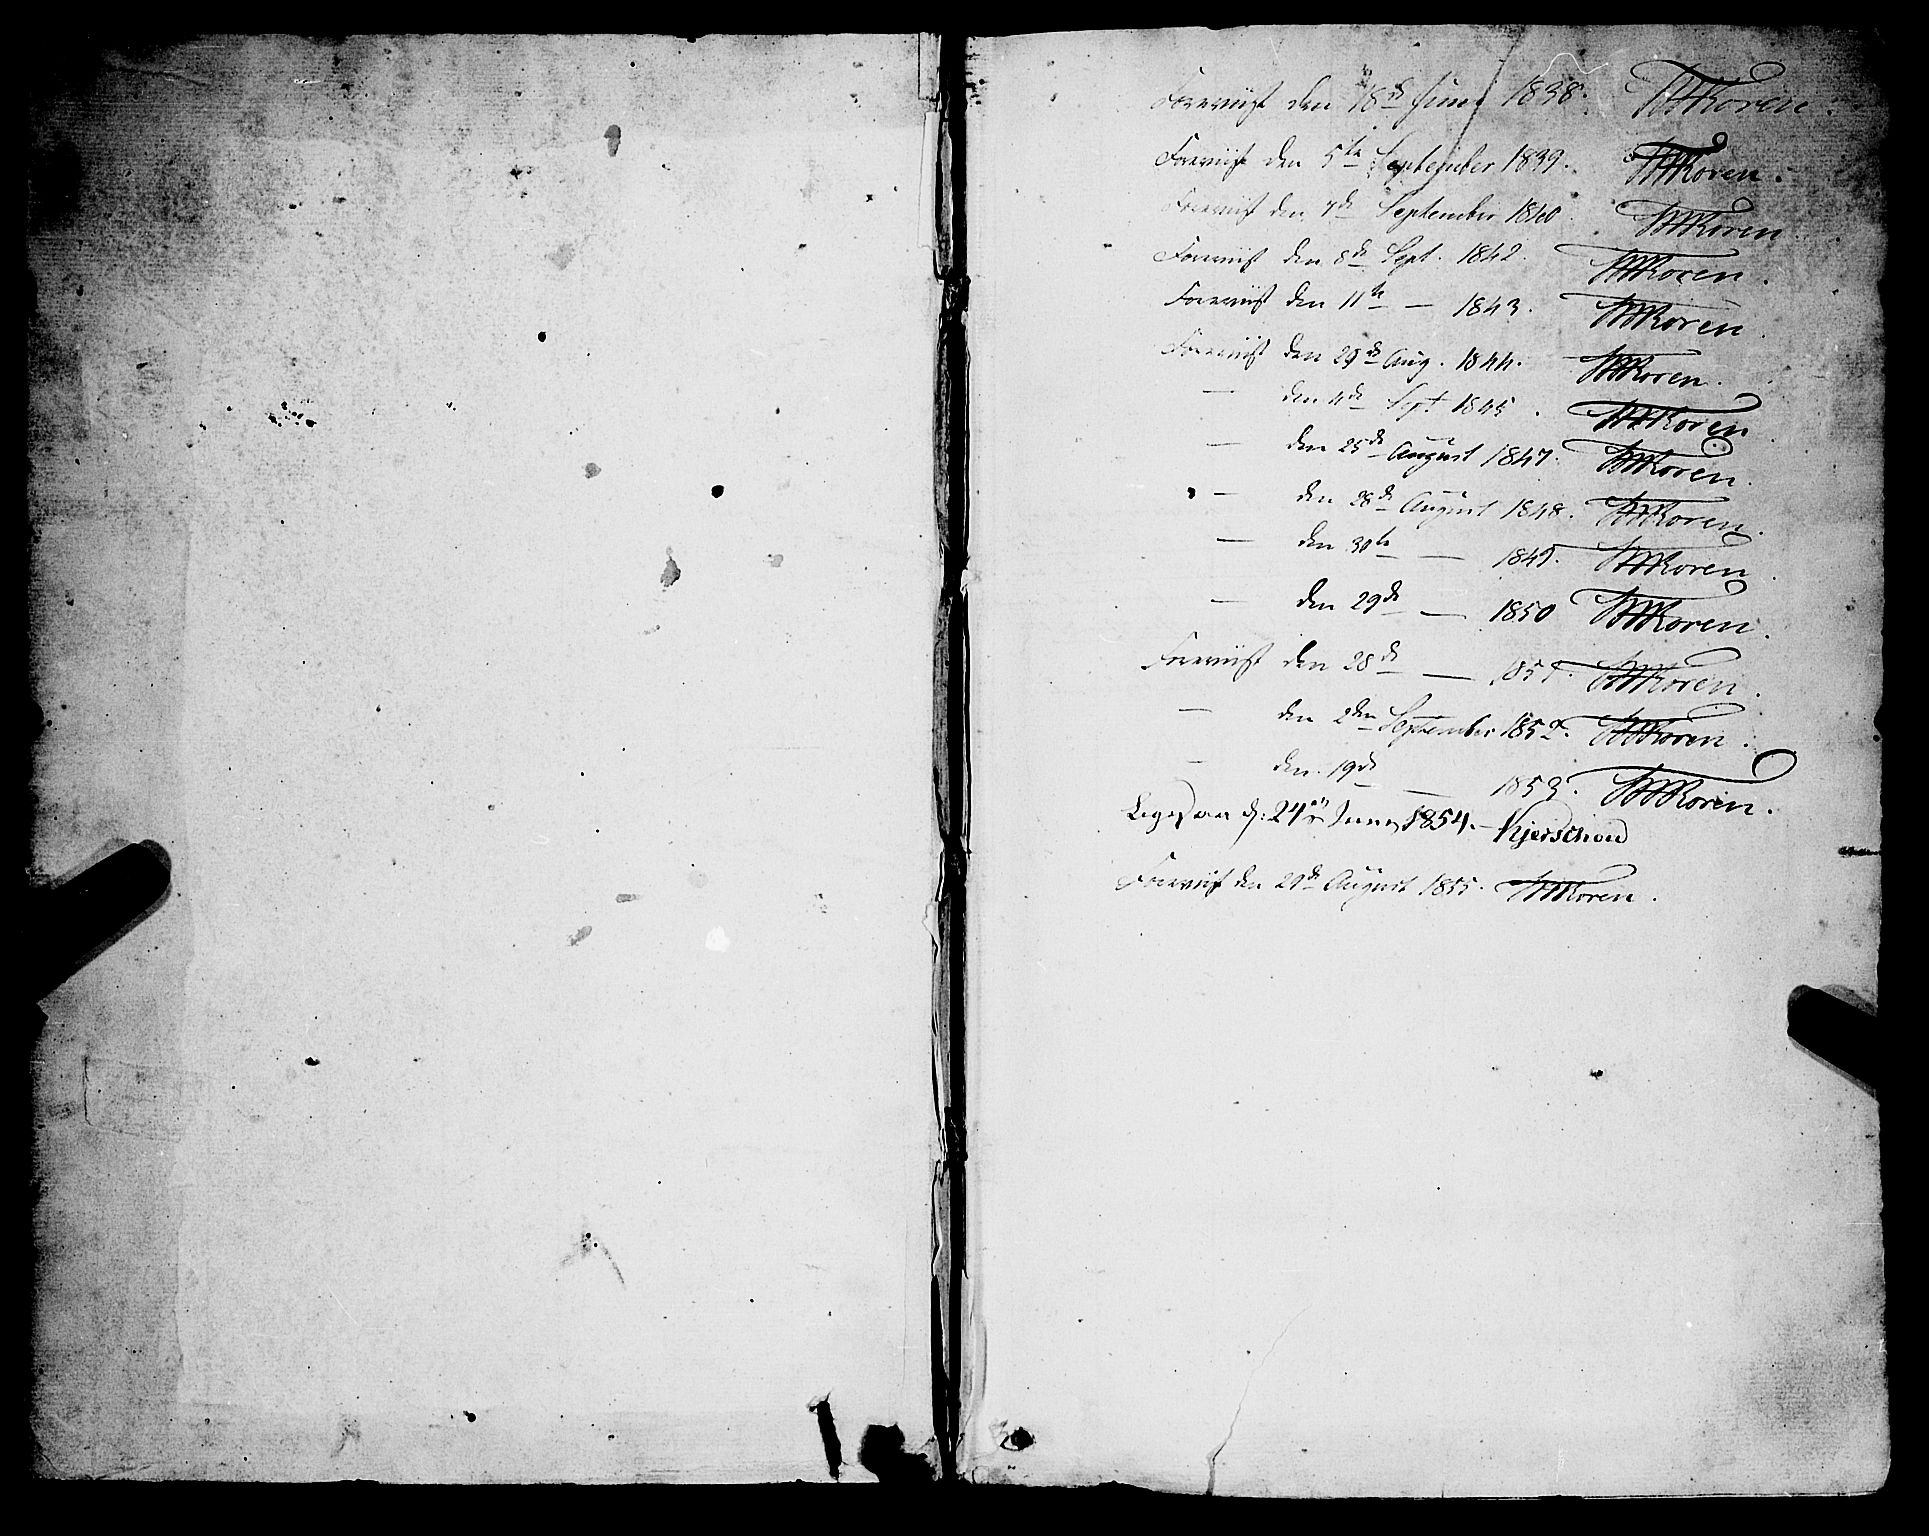 Foreviist den 18de Juni 1838. WKoren.
Foreviist den 5te September 1839. WKoren.
Foreviist den 7de September 1840. WKoren
Foreviist den 8de Sept. 1842. WKoren.
Foreviist den 11te — 1843. WKoren.
Foreviist den 29de Aug. 1844. WKoren.
— den 4de Sept 1845. WKoren
— den 25de August 1847. WKoren.
— den 28de August 1848. WKoren.
— den 30te — 1849. WKoren.
— den 29de — 1850 WKoren.
Foreviist den 28de — 1851. WKoren.
— den 2den September 1852. WKoren.
— den 19de — 1853. WKoren.
24 Juni 1854. Kjerschow
Foreviist den 29de August 1855. WKoren.